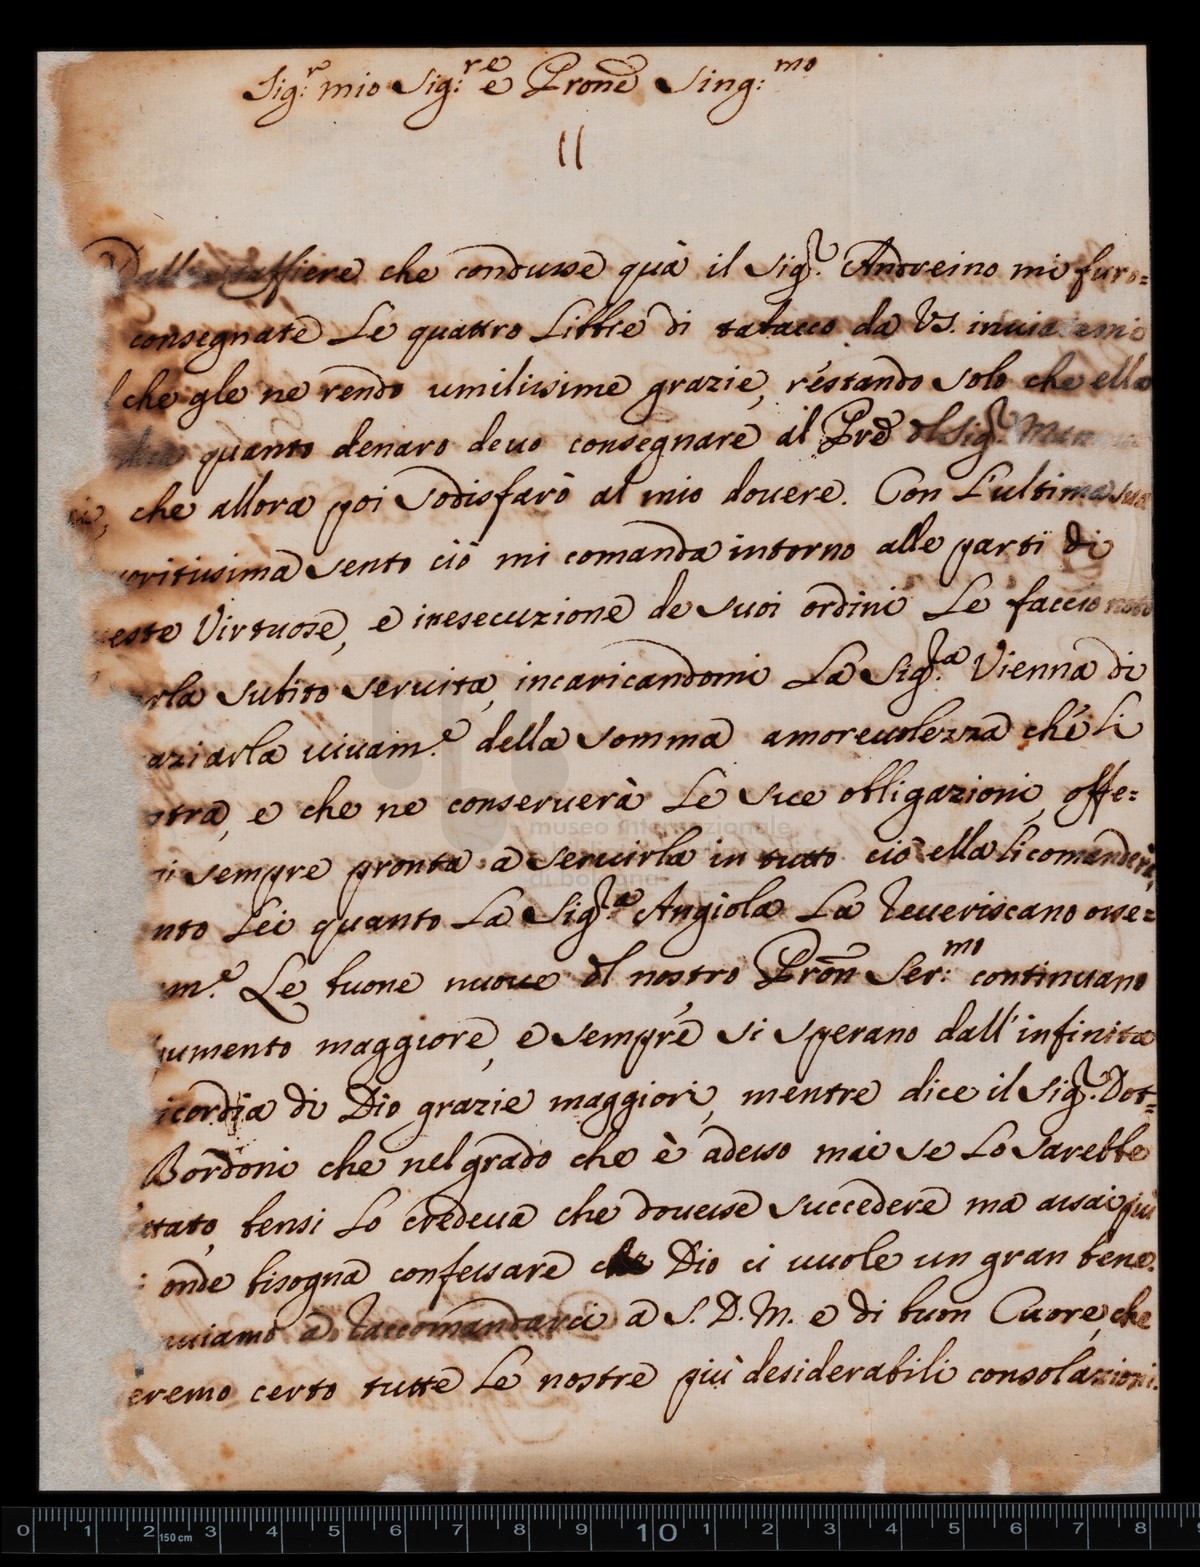 Sig:r mio Sig:re e Prone Sing:mo
che condusse quà il Sig.r Andreino mi furo=
consegnate Le quattro Libbre di tabacco da VS. inuia
che gle ne rendo umilissime grazie, restando solo che ella
quanto denaro deuo consegnare al Pre del Sig.r
che allora poi sodisfarò al mio douere. Con L'ultima sua
sento ciò mi comanda intorno alle parti di
este Virtuose, e inesecuzione de suoi ordini Le faccio noto
rla subito seruita, incaricandomi La Sig.ra Vienna di
aziarla uiuam.e della somma amoreuolezza che li
stra, e che ne conseruerà Le sue obligazioni, offe=
si sempre pronta a seruirla in tutto ciò ella li comanderà,
nto Lei quanto La Sig.ra Angiola La reueriscano osse=
m.e Le buone nuoue del nostro Pron Ser:mo continuano
umento maggiore, e sempre si sperano dall'infinita
icordia di Dio grazie maggiori, mentre dice il Sig.r Dot=
Bordoni che nel grado che è adesso mai se Lo sarebbe
ettato, bensi Lo credeua che douesse succedere ma assai più
: onde bisogna confessare che Dio ci uuole un gran bene.
uiamo a raccomandarci a S. D. M. e di buon Cuore, che
eremo certo tutte Le nostre più desiderabili consolazioni.
museo internazionale
di bologna
0 1 2 3 4 5 6 7 8 9 10 1 2 3 4 5 6 7 8
150 cm